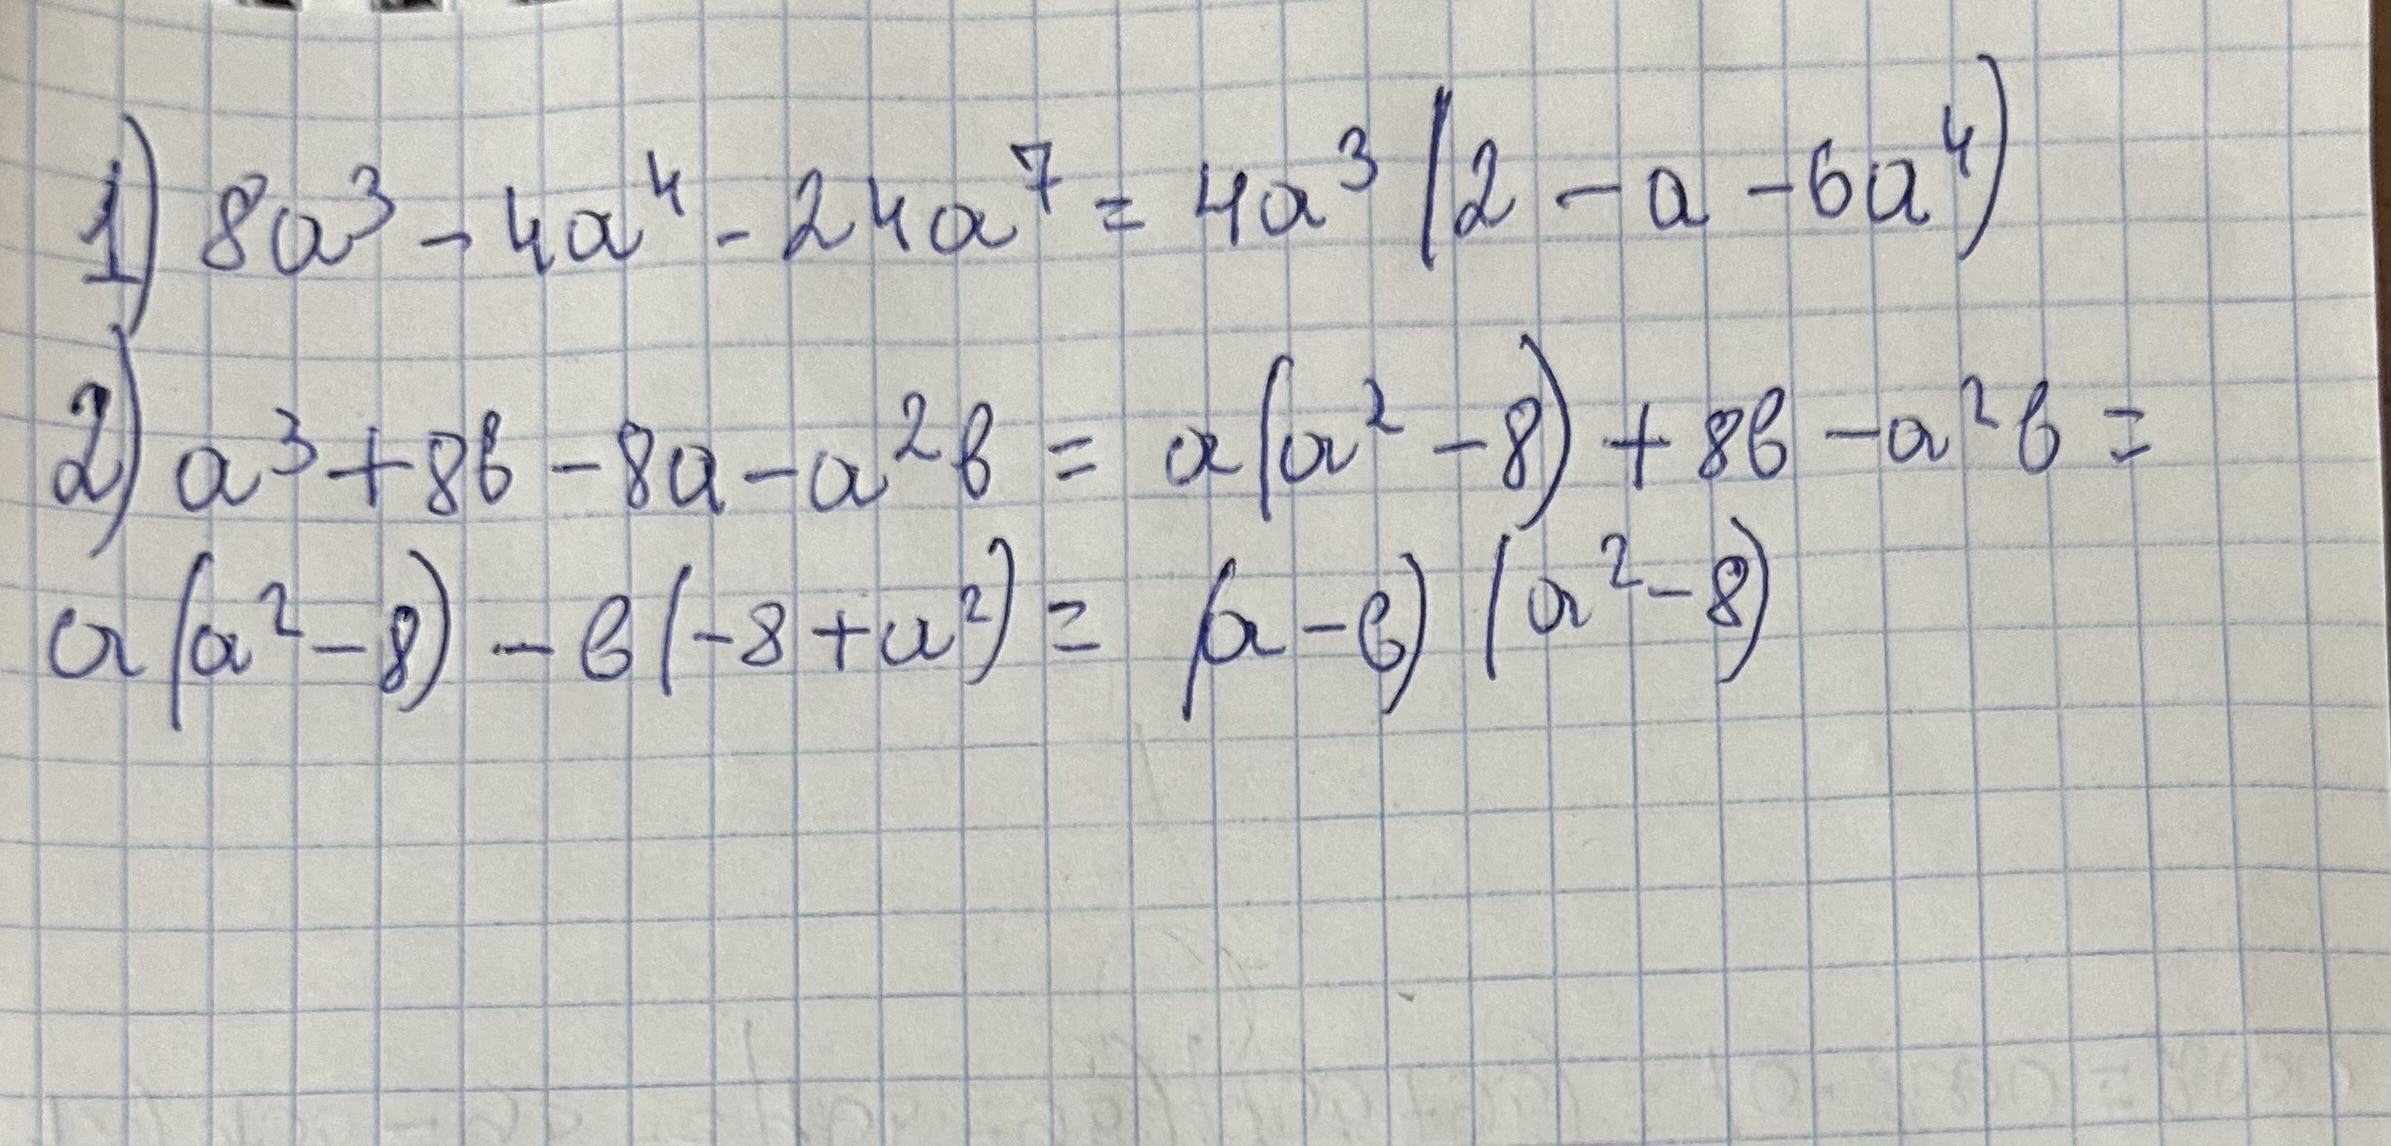 1) 8a³ - 4a⁴ - 24a⁷ = 4a³ (2 - a - 6a⁴)
2) a³ + 8в - 8a - a²в = a(a² - 8) + 8в - a²в =
a(a² - 8) - в(-8 + a²) = (a - в) (a² - 8)